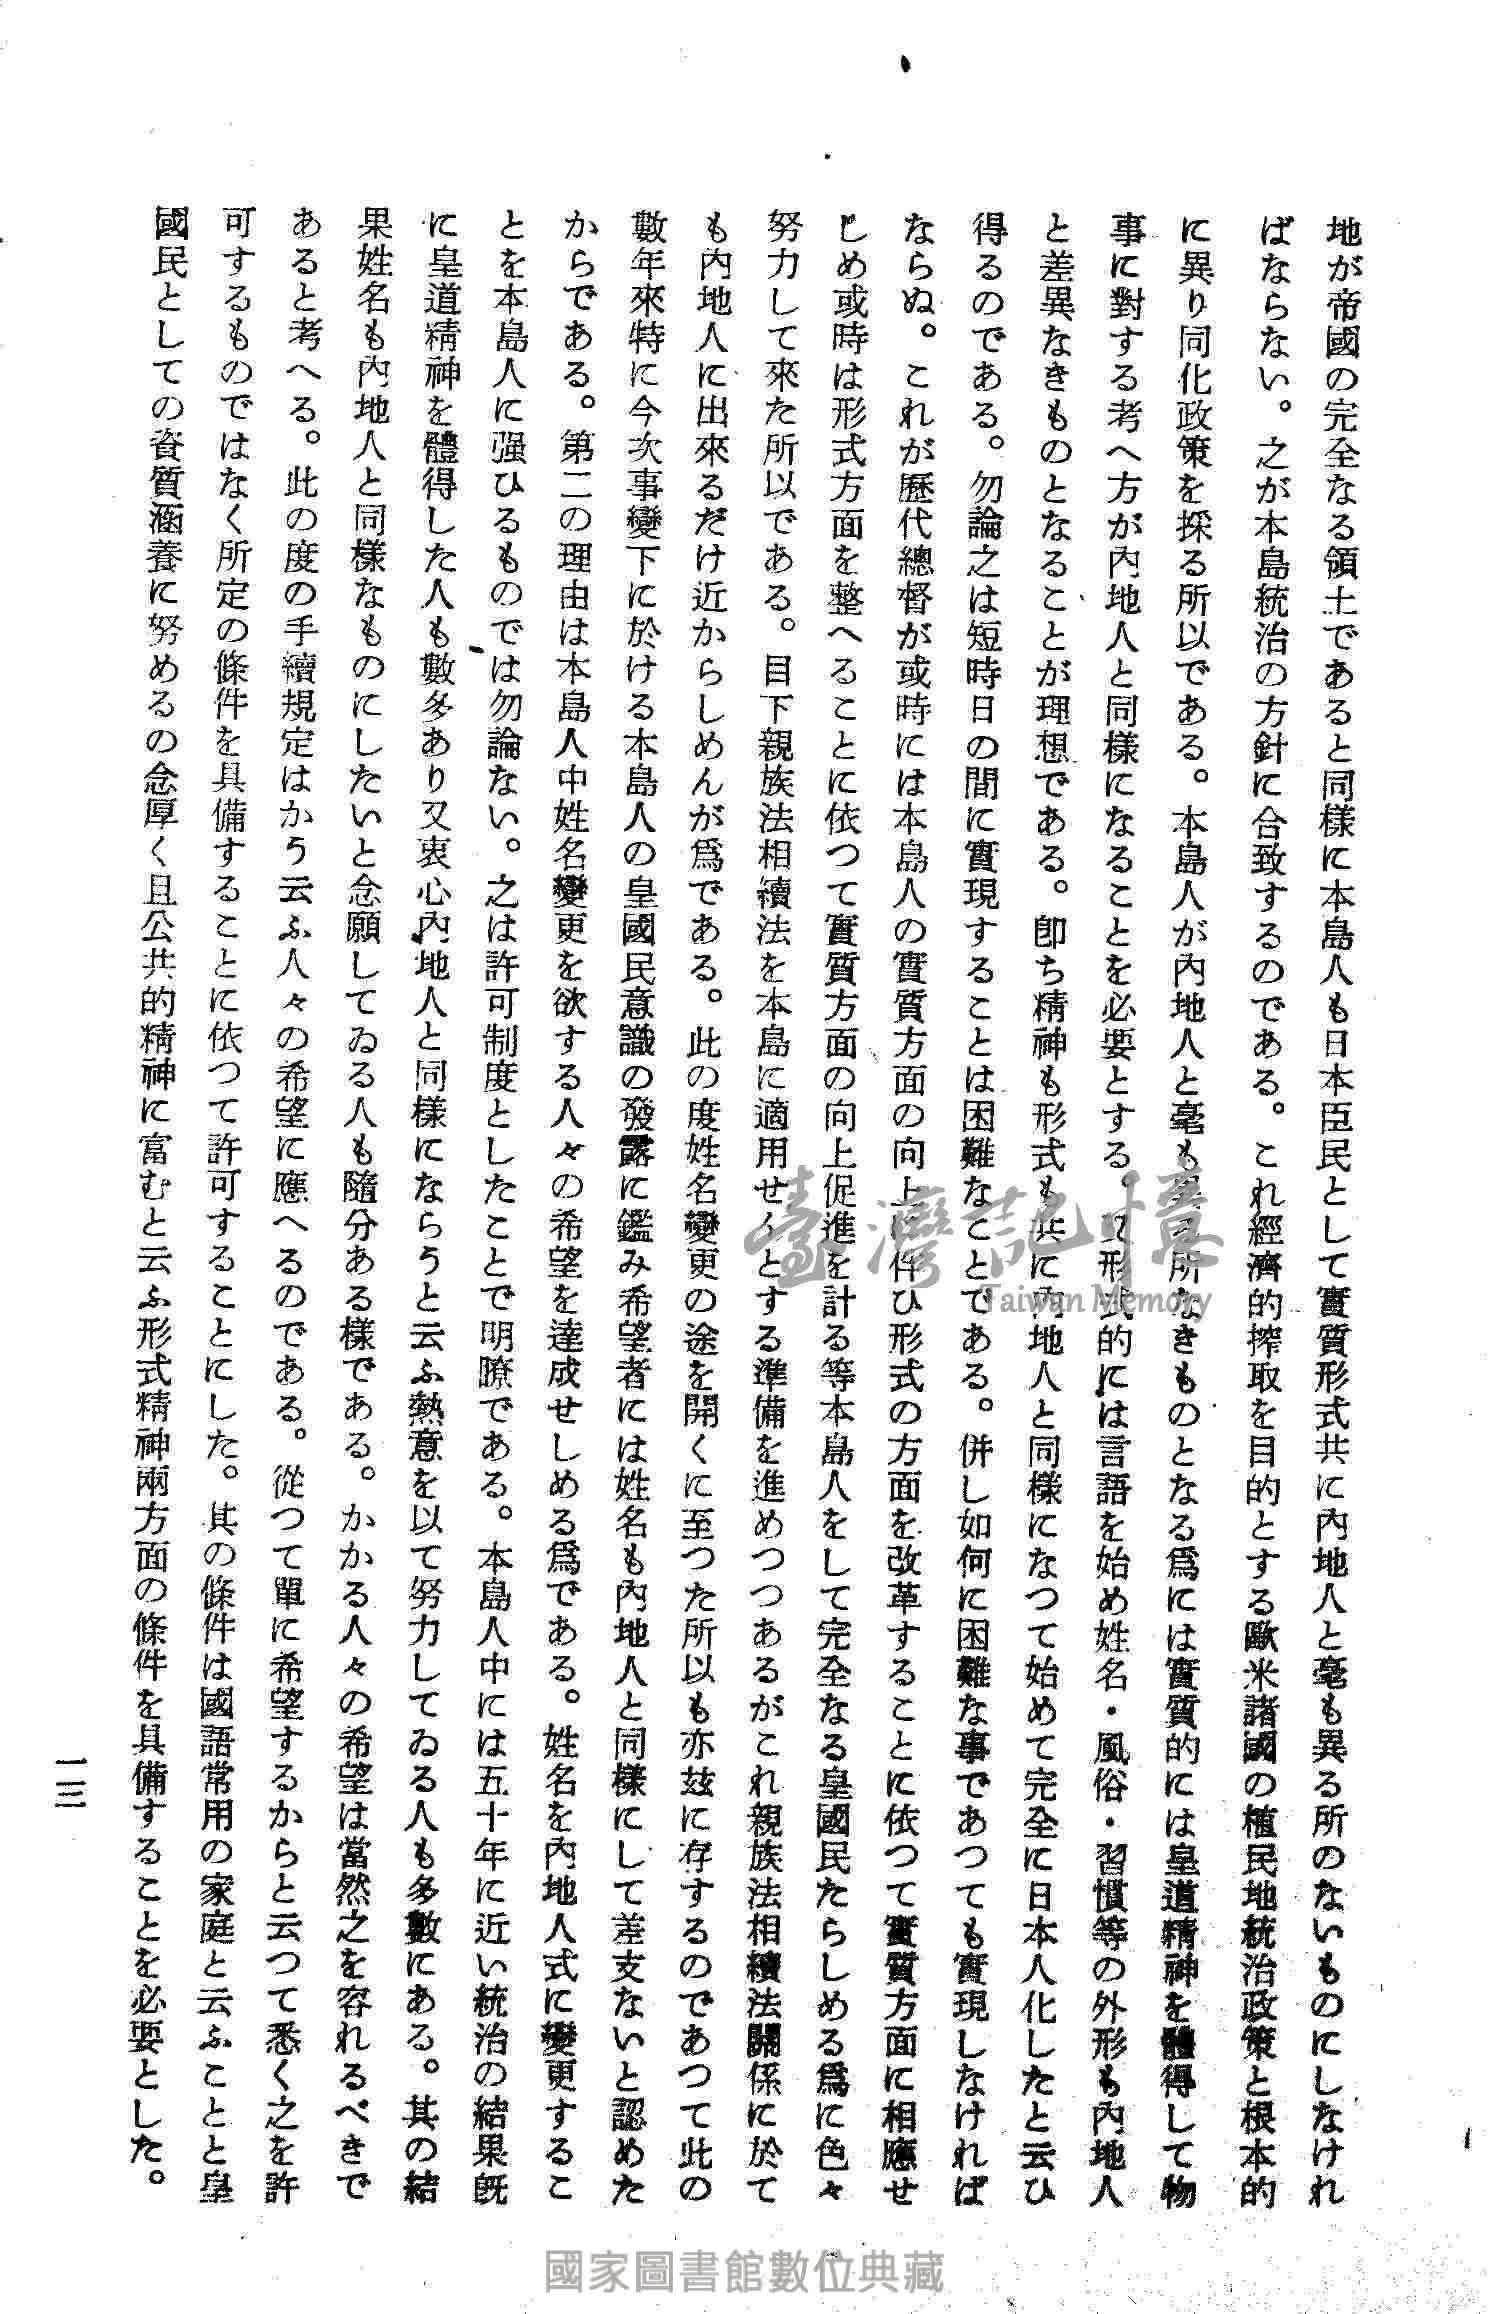 地が帝國の完全なる領土であると同樣に本島人も日本臣民として實質形式共に內地人と毫も異る所のないものにしなけれ
ばならない。之が本島統治の方針に合致するのである。これ經濟的搾取を目的とする歐米諸國の植民地統治政策と根本的
に異り同化政策を採る所以である。本島人が內地人と毫も異る所なきものとなる爲には實質的には皇道精神を體得して物
事に對する考へ方が內地人と同樣になることを必要とする。又形式的には言語を始め姓名・風俗・習慣等の外形も內地人
と差異なきものとなることが理想である。卽ち精神も形式も共に內地人と同樣になつて始めて完全に日本人化したと云ひ
得るのである。勿論之は短時日の間に實現することは困難なことである。併し如何に困難な事であつても實現しなければ
ならぬ。これが歷代總督が或時には本島人の實質方面の向上に伴ひ形式の方面を改革することに依つて實質方面に相應せ
しめ或時は形式方面を整へることに依つて實質方面の向上促進を計る等本島人をして完全なる皇國民たらしめる爲に色々
努力して來た所以である。目下親族法相續法を本島に適用せんとする準備を進めつつあるがこれ親族法相續法關係に於て
も內地人に出來るだけ近からしめんが爲である。此の度姓名變更の途を開くに至つた所以も亦玆に存するのであつて此の
數年來特に今次事變下に於ける本島人の皇國民意識の發露に鑑み希望者には姓名も內地人と同樣にして差支ないと認めた
からである。第二の理由は本島人中姓名變更を欲する人々の希望を達成せしめる爲である。姓名を內地人式に變更するこ
とを本島人に强ひるものでは勿論ない。之は許可制度としたことで明瞭である。本島人中には五十年に近い統治の結果旣
に皇道精神を體得した人も數多あり又衷心內地人と同樣にならうと云ふ熱意を以て努力してゐる人も多數にある。其の結
果姓名も內地人と同樣なものにしたいと念願してゐる人も隨分ある樣である。かかる人々の希望は當然之を容れるべきで
あると考へる。此の度の手續規定はかう云ふ人々の希望に應へるのである。從つて單に希望するからと云つて悉く之を許
可するものではなく所定の條件を具備することに依つて許可することにした。其の條件は國語常用の家庭と云ふことと皇
國民としての資質涵養に努めるの念厚く且公共的精神に富むと云ふ形式精神兩方面の條件を具備することを必要とした。
一三
臺灣記憶
Taiwan Memory
國家圖書館數位典藏